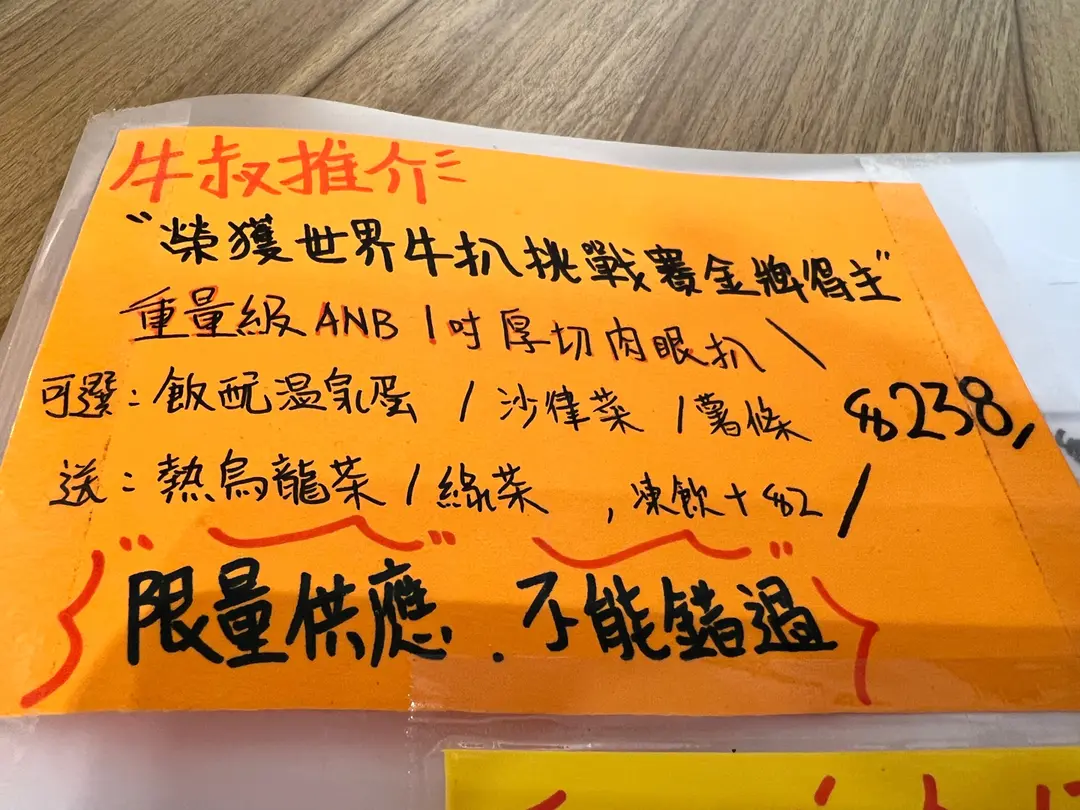 牛叔推介
"榮獲世界牛扒挑戰賽金牌得主"
重量級ANB 1吋厚切肉眼扒 \
可選：飯配温泉蛋 / 沙律菜 / 薯條 $238,
送：熱烏龍茶 / 綠茶 , 凍飲+$2 /
"限量供應". 不能錯過"